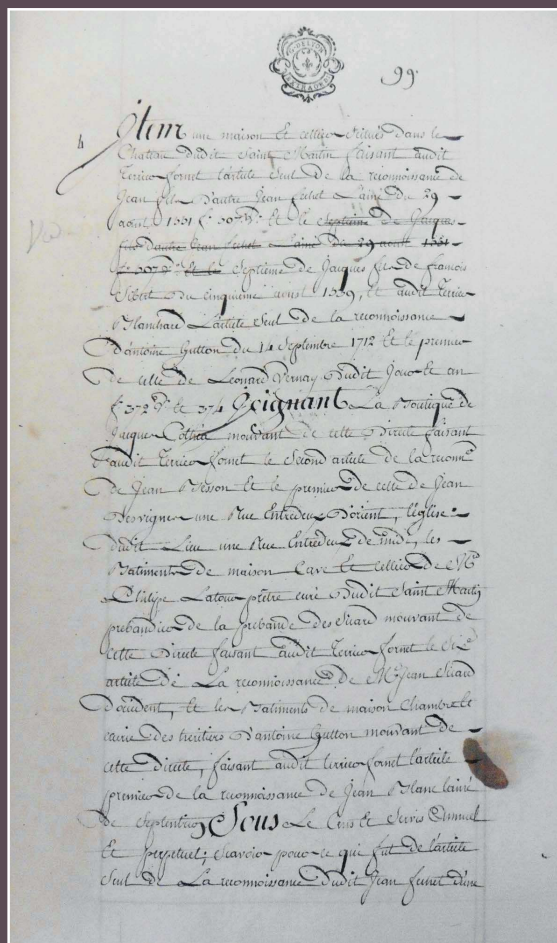 99.
4 Item une maison et cellier situés dans le
Chateau dudit Saint Martin faisant audit
terrier fornet l'article seul de la reconnoissance de
Jean fils d'autre Jean L'ainé du 29
aoust 1551 f.° et le septieme de Jacques
fils d'autre Jean L'ainé du 29 aoust 1551
et le septieme de Jacques fils de francois
du cinquieme aoust 1559, et audit terrier
Blanchard L'article seul de la reconnoissance
d'antoine Gutton du 14 Septembre 1712 et le premier
de celle de Leonard Vernay dudit jour le an
f.° 372 v.° et 374 Joignant La Boutique de
Jacques mouvant de cette Directe faisant
audit terrier fornet le Second article de la reconn.ce
de Jean et le premier de celle de Jean
Desvignes une Rue Entredeux D'orient, l'église
dudit Lieu une Rue Entredeux de midi, les
Batiments de maison Cave et cellier de M.e
Philipe Latour prêtre curé dudit Saint Martin
prebandier de la prebande des Sicard mouvant de
cette Directe faisant audit terrier fornet le
article de La reconnoissance de M.e Jean Sicard
D'occident, et les Batiments de maison Chambre et
des heritiers d'antoine Gutton mouvant de
cette Directe, faisant audit terrier fornet l'article
premier de la reconnoissance de Jean Blanc
de Septentrion, Sous Le Cens et Servis Annuel
Et perpetuel; Scavoir pour ce qui fut de l'article
Seul de La reconnoissance dudit Jean d'une